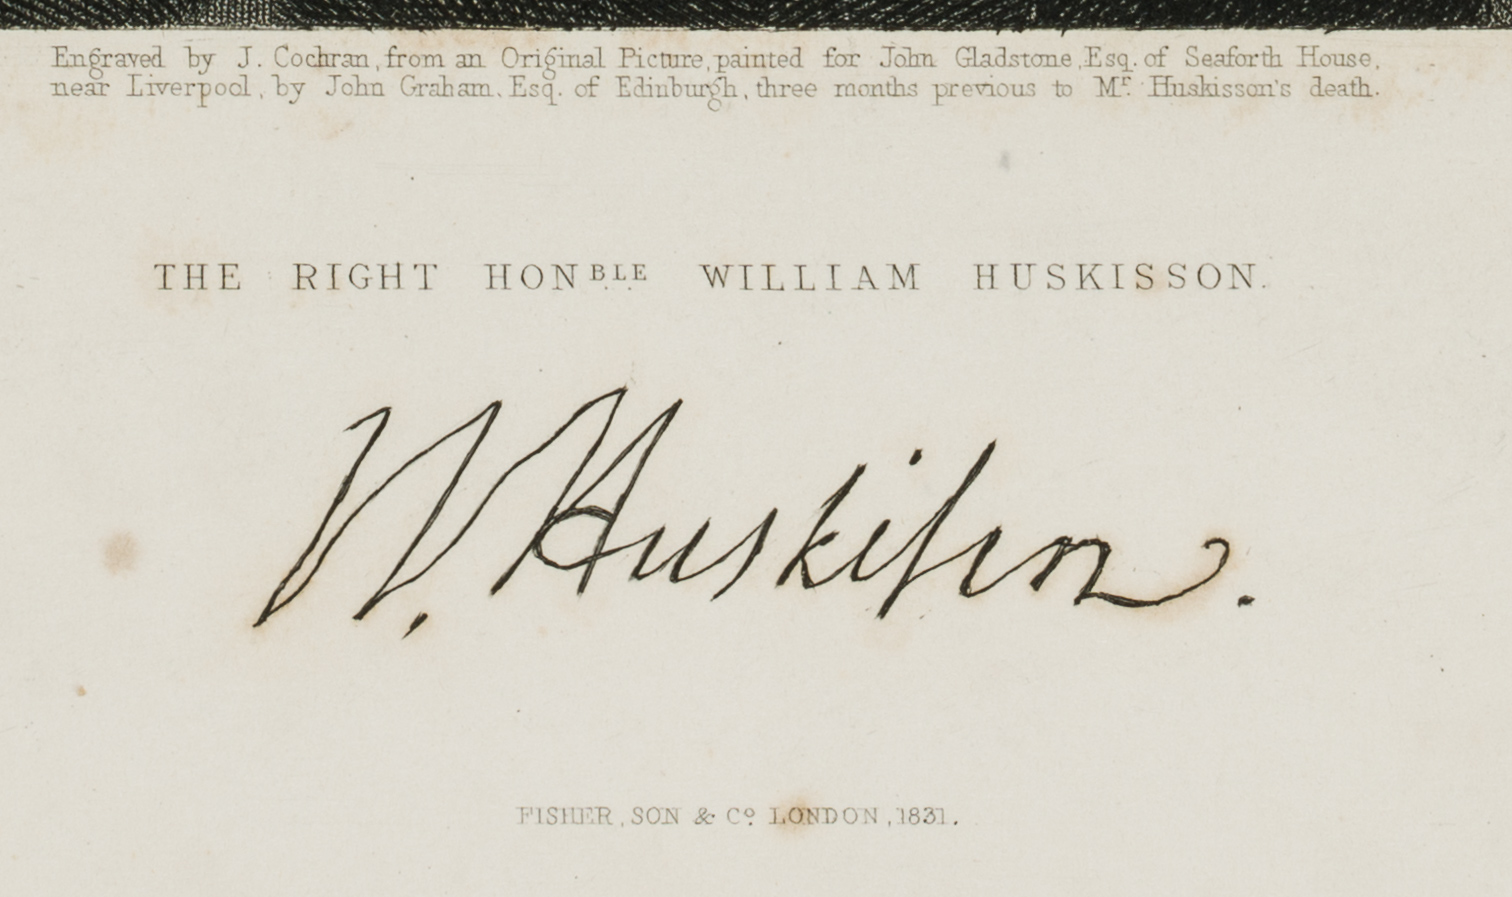 Engraved by J. Cochran, from an Original Picture, painted for John Gladstone, Esq. of Seaforth House,
near Liverpool, by John Graham, Esq. of Edinburgh, three months previous to Mr. Huskisson's death.
THE RIGHT HONBLE WILLIAM HUSKISSON.
W. Huskiſson.
FISHER, SON & Co. LONDON, 1831.